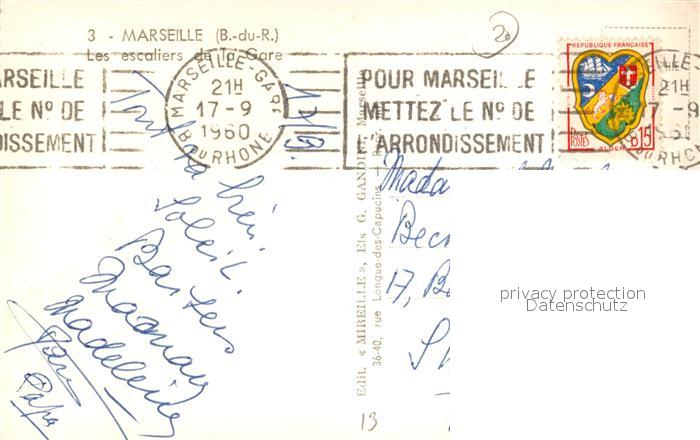 3 - MARSEILLE (B.-du-R.)
Les escaliers de la Gare
20
ARSEILLE
LE Nº DE
DISSEMENT
MARSEILLE-GARE
21H
17-9
1960
B DU RHONE
POUR MARSEILLE
METTEZ LE Nº DE
L'ARRONDISSEMENT
REPUBLIQUE FRANÇAISE
POSTES
ALGER
0,15
21H
RHONE
17/9.
Tout va bien.
Soleil.
Baisers
Maman
Madeleine
Papa
Edit. « MIREILLE », Ets G. GANDINI, Marseille
36-40, rue Longue-des-Capucins
Mada
Bec
17, B
privacy protection
Datenschutz
13